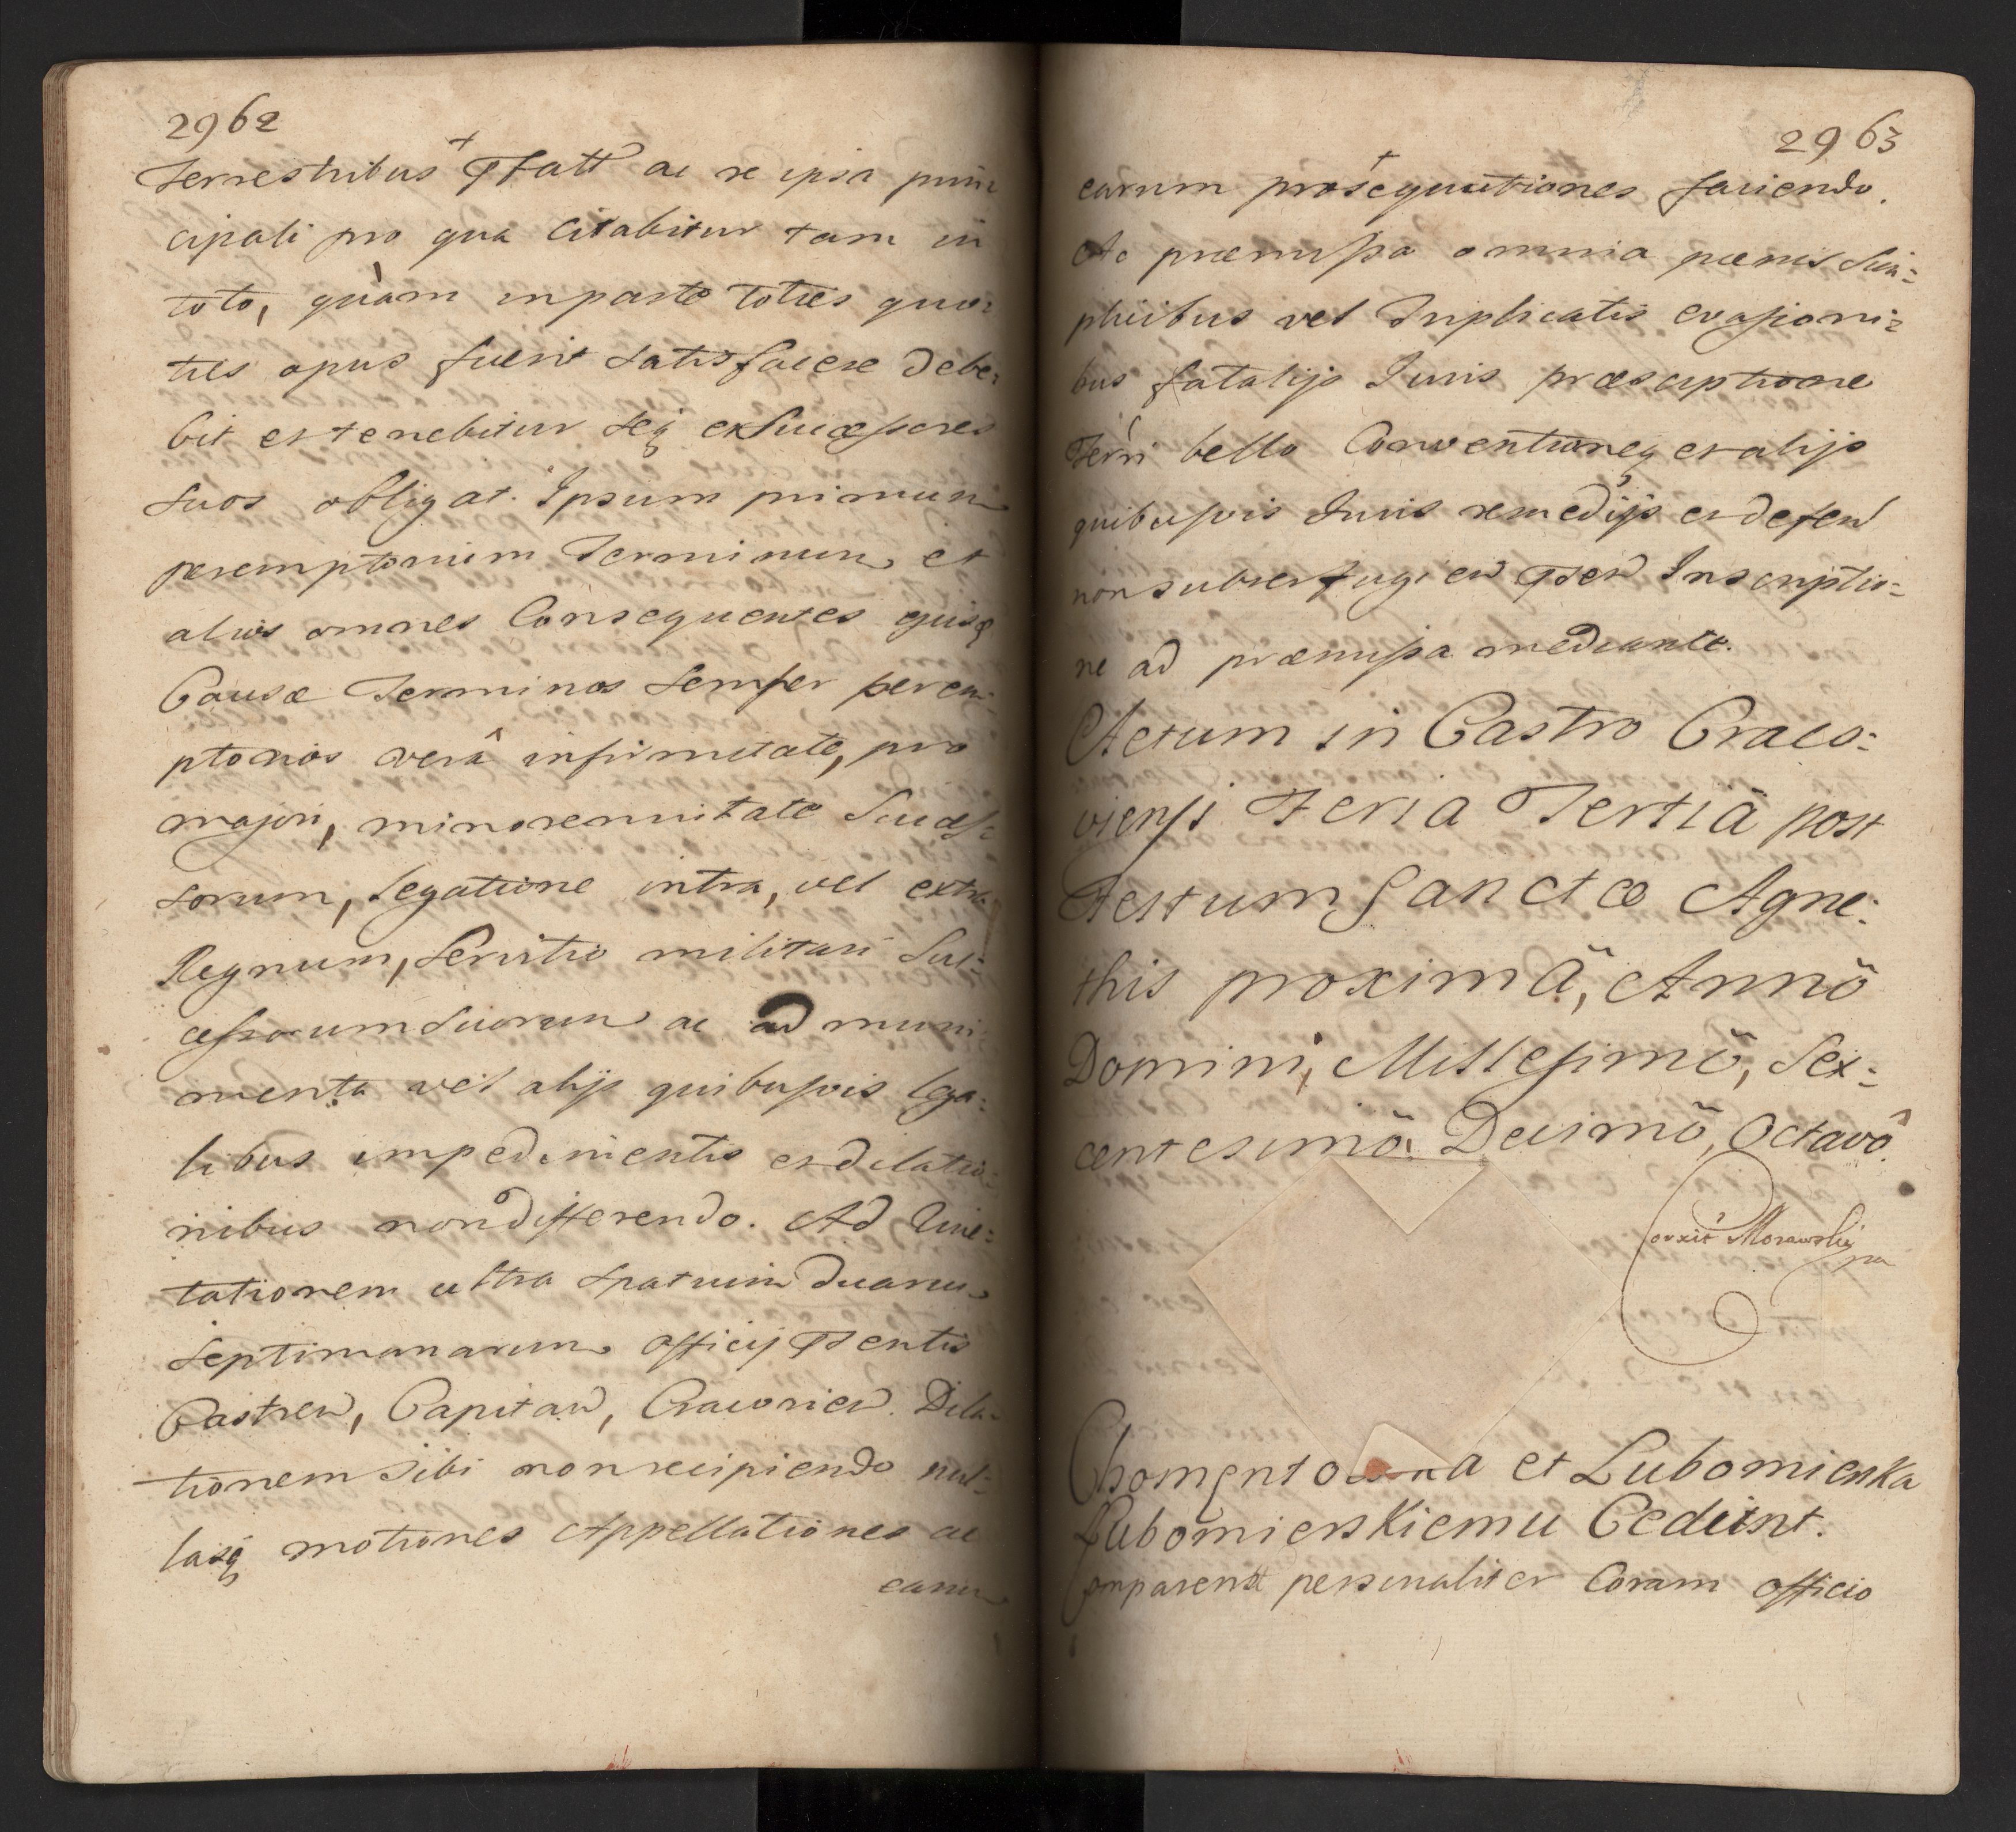 2962
Terrestribus Pfatt ac re ipsa prin
cipali pro qua citabitur tam in
toto, quàm inparte toties quo:
ties opus fuerit satisfacere debe:
bit et tenebitur seq exSuccessores
suos obligat. Ipsum primum
peremptorium Terminum et
alios omnes Consequentes ejusq
Causæ Terminos semper perem:
ptorios verâ infirmitate, pro
majori, minorennitate Success
sorum, legatione intra, vel extra
Regnum, Servitio militari Suc:
cessorum suorum ac ad muni
menta vel alijs quibusvis lega:
libus impedimentis et dilatio:
nibus non differendo. Ad Quie:
tationem ultra spatium duarum
septimanarum officij Psentis
Castren, Capitan, Cracovien. Dila:
tionem sibi non recipiendo nul:
lasq motiones Appellationes ac
earum
2963
earum prosequutiones faciendo.
Ac præmissa omnia pœnis Sim:
plicibus vel Triplicatis evasioni:
bus fatalijs Iuris præscriptione
Terri bello Conventioneq et alijs
quibusvis Iuris remedijs et defen
non subterfugien Psen Inscriptio:
ne ad præmissa mediante.
Actum in Castro Craco:
viensi Feria Tertiâ post
Festum Sanctæ Agne:
this proximâ, Annô
Domini, Millesimô, Sex:
centesimô Decimô, Octavô.
Correxit Morawski
mp
Chomentowska et Lubomierska
Lubomierskiemu Cedunt.
Comparentt personaliter Coram officio